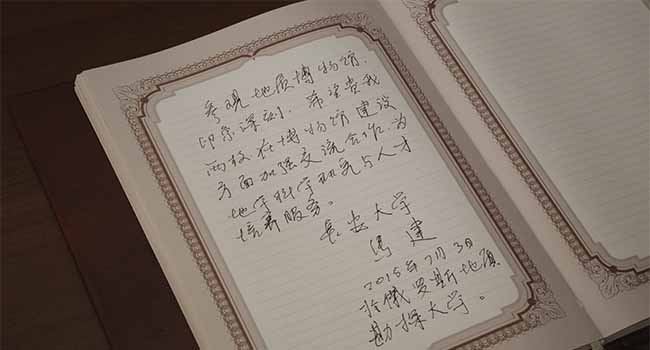 参观地质博物馆，
印象深刻。希望贵我
两校在博物馆建设
方面加强交流合作，为
地学科学研究与人才
培养服务。
長安大学
马建
2015年7月3日
于俄罗斯地质
勘探大学。